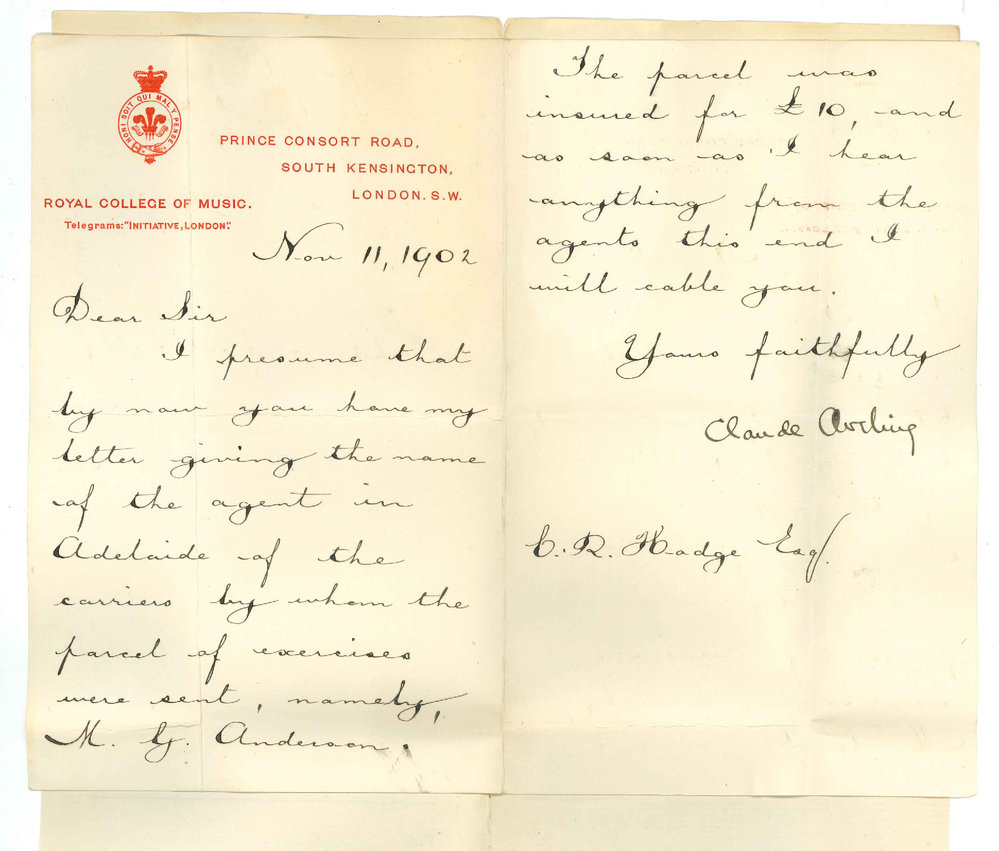 HONI SOIT QUI MAL Y PENSE
PRINCE CONSORT ROAD,
SOUTH KENSINGTON,
LONDON. S.W.
ROYAL COLLEGE OF MUSIC.
Telegrams: "INITIATIVE, LONDON".
Nov 11, 1902
Dear Sir
I presume that
by now you have my
letter giving the name
of the agent in
Adelaide of the
carriers by whom the
parcel of exercises
were sent, namely,
M. G. Anderson.
The parcel was
insured for £10, and
as soon as I hear
anything from the
agents this end I
will cable you.
Yours faithfully
Claude Aveling
C. R. Hodge Esq.